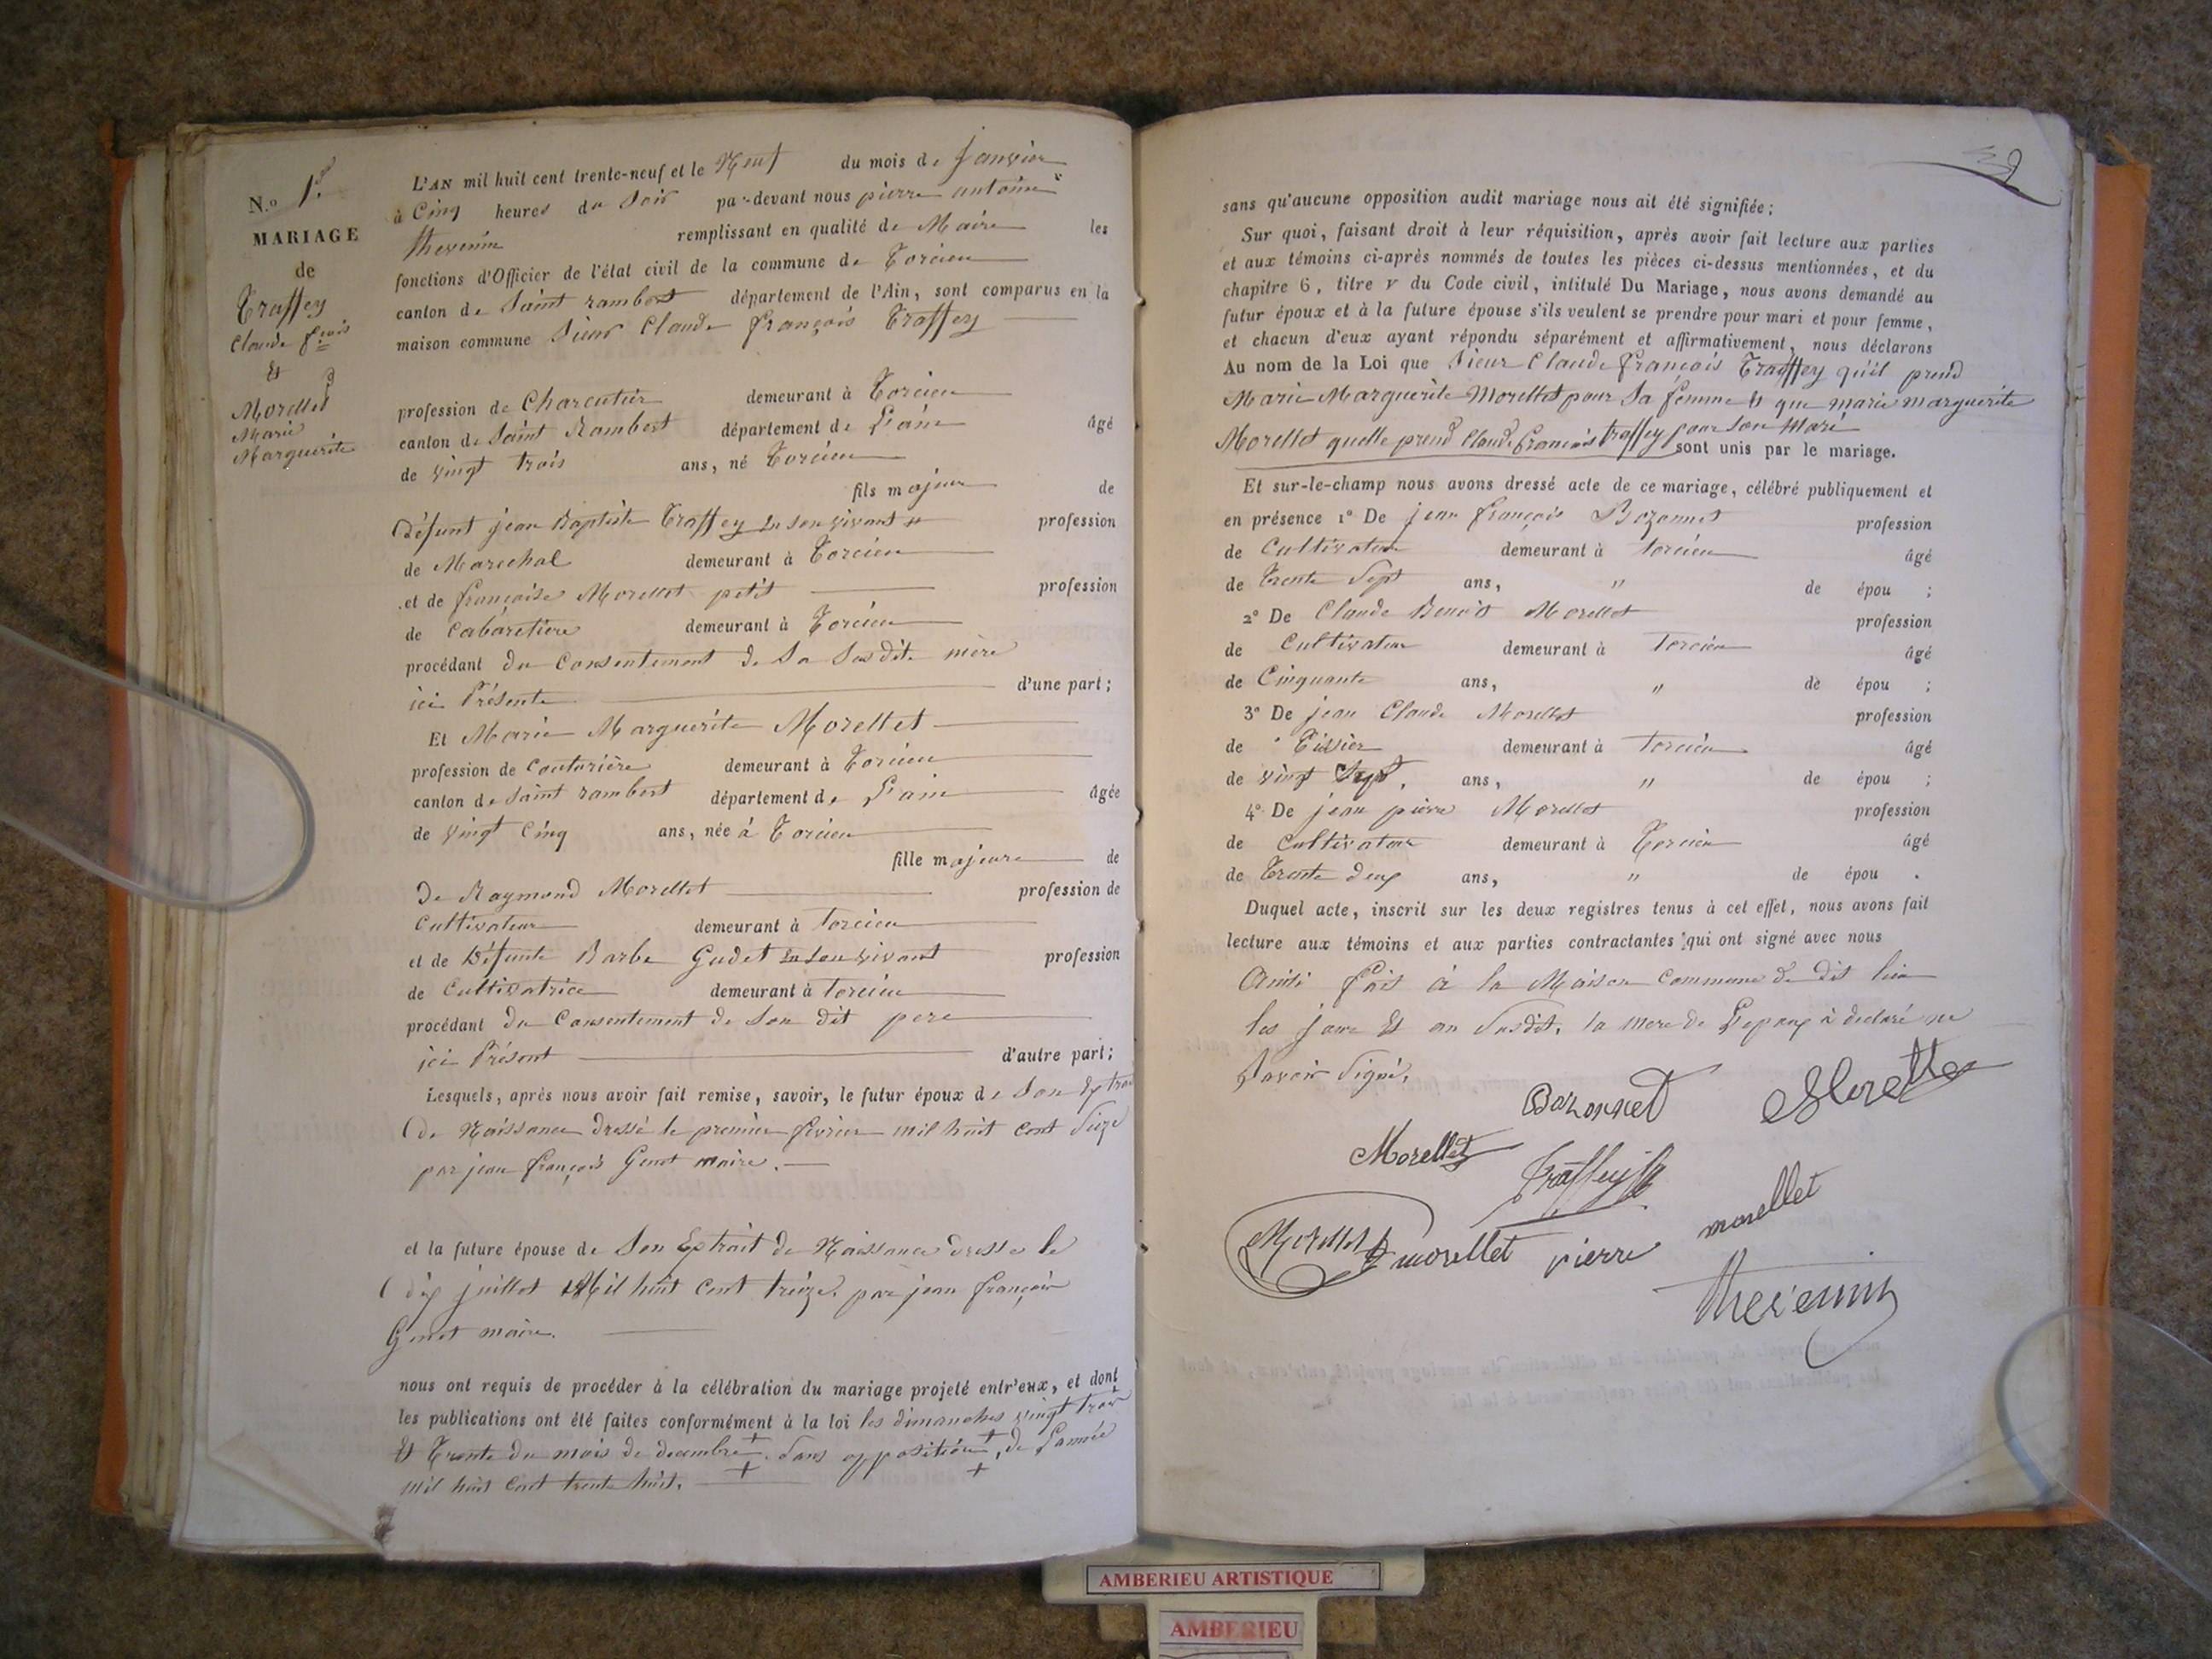 N.o 1.er
MARIAGE
de
Traffey
Claude f.çois
Et
Morellet
Marie
Marguérite
L'AN mil huit cent trente-neuf et le Neuf du mois de janvier
à Cinq heures du Soir par-devant nous pierre antoine
thevenin remplissant en qualité de Maire les
fonctions d'Officier de l'état civil de la commune de Torcieu
canton de Saint rambert département de l'Ain, sont comparus en la
maison commune Sieur Claude françois Traffey
profession de Charcutier demeurant à Torcieu
canton de Saint Rambert département de L'ain âgé
de vingt trois ans, né Torcieu
fils majeur de
Défunt jean Baptiste Traffey En son vivant profession
de Marechal demeurant à Torcieu
et de françoise Morellet petit profession
de Cabaretiere demeurant à Torcieu
procédant du Consentement de Sa Susdite mère
ici Présente d'une part;
Et Marie Marguérite Morellet
profession de Couturière demeurant à Torcieu
canton de Saint rambert département de L'ain âgée
de vingt Cinq ans, née à Torcieu
fille majeure de
De Raymond Morellet profession de
Cultivateur demeurant à Torcieu
et de Défunte Barbe Gudet En son vivant profession
de Cultivatrice demeurant à Torcieu
procédant du Consentement de Son dit pere
ici Présent d'autre part;
Lesquels, après nous avoir fait remise, savoir, le futur époux de Son Extrait
De Naissance dressé le premier fevrier mil huit cent Sieze
par jean françois Genet maire.
et la future épouse de Son Extrait de Naissance dressé le
dix juillet Mil huit Cent treize, par jean françois
Genet maire.
nous ont requis de procéder à la célébration du mariage projeté entr'eux, et dont
les publications ont été faites conformément à la loi les dimanches vingt trois
Et Trente du mois de decembre + sans opposition +, de L'année
mil huit Cent trente huit. + +
sans qu'aucune opposition audit mariage nous ait été signifiée;
Sur quoi, faisant droit à leur réquisition, après avoir fait lecture aux parties
et aux témoins ci-après nommés de toutes les pièces ci-dessus mentionnées, et du
chapitre 6, titre V du Code civil, intitulé Du Mariage, nous avons demandé au
futur époux et à la future épouse s'ils veulent se prendre pour mari et pour femme,
et chacun d'eux ayant répondu séparément et affirmativement, nous déclarons
Au nom de la Loi que Sieur Claude François Traffey qu'il prend
Marie Marguerite Morellet pour Sa femme Et que marie marguerite
Morellet quelle prend Claude françois traffey pour Son Mari sont unis par le mariage.
Et sur-le-champ nous avons dressé acte de ce mariage, célébré publiquement et
en présence 1º De jean françois Bozonnet profession
de Cultivateur demeurant à Torcieu âgé
de Trente Sept ans, " de épou ;
2º De Claude Benoît Morellet profession
de Cultivateur demeurant à Torcieu âgé
de Cinquante ans, " de épou ;
3º De jean Claude Morellet profession
de Tissier demeurant à Torcieu âgé
de vingt Sept, ans, " de épou ;
4º De jean pierre Morellet profession
de Cultivateur demeurant à Torcieu âgé
de Trente deux ans, " de épou .
Duquel acte, inscrit sur les deux registres tenus à cet effet, nous avons fait
lecture aux témoins et aux parties contractantes qui ont signé avec nous
Ainsi fait à la Maison Commune du dit lieu
les jour Et an Susdit. la mere de L'epoux à declaré ne
Savoir Signé.
Bozonnet Morellet
Morellet Traffey
Morellet morellet pierre morellet
thevenin
AMBERIEU ARTISTIQUE
AMBERIEU